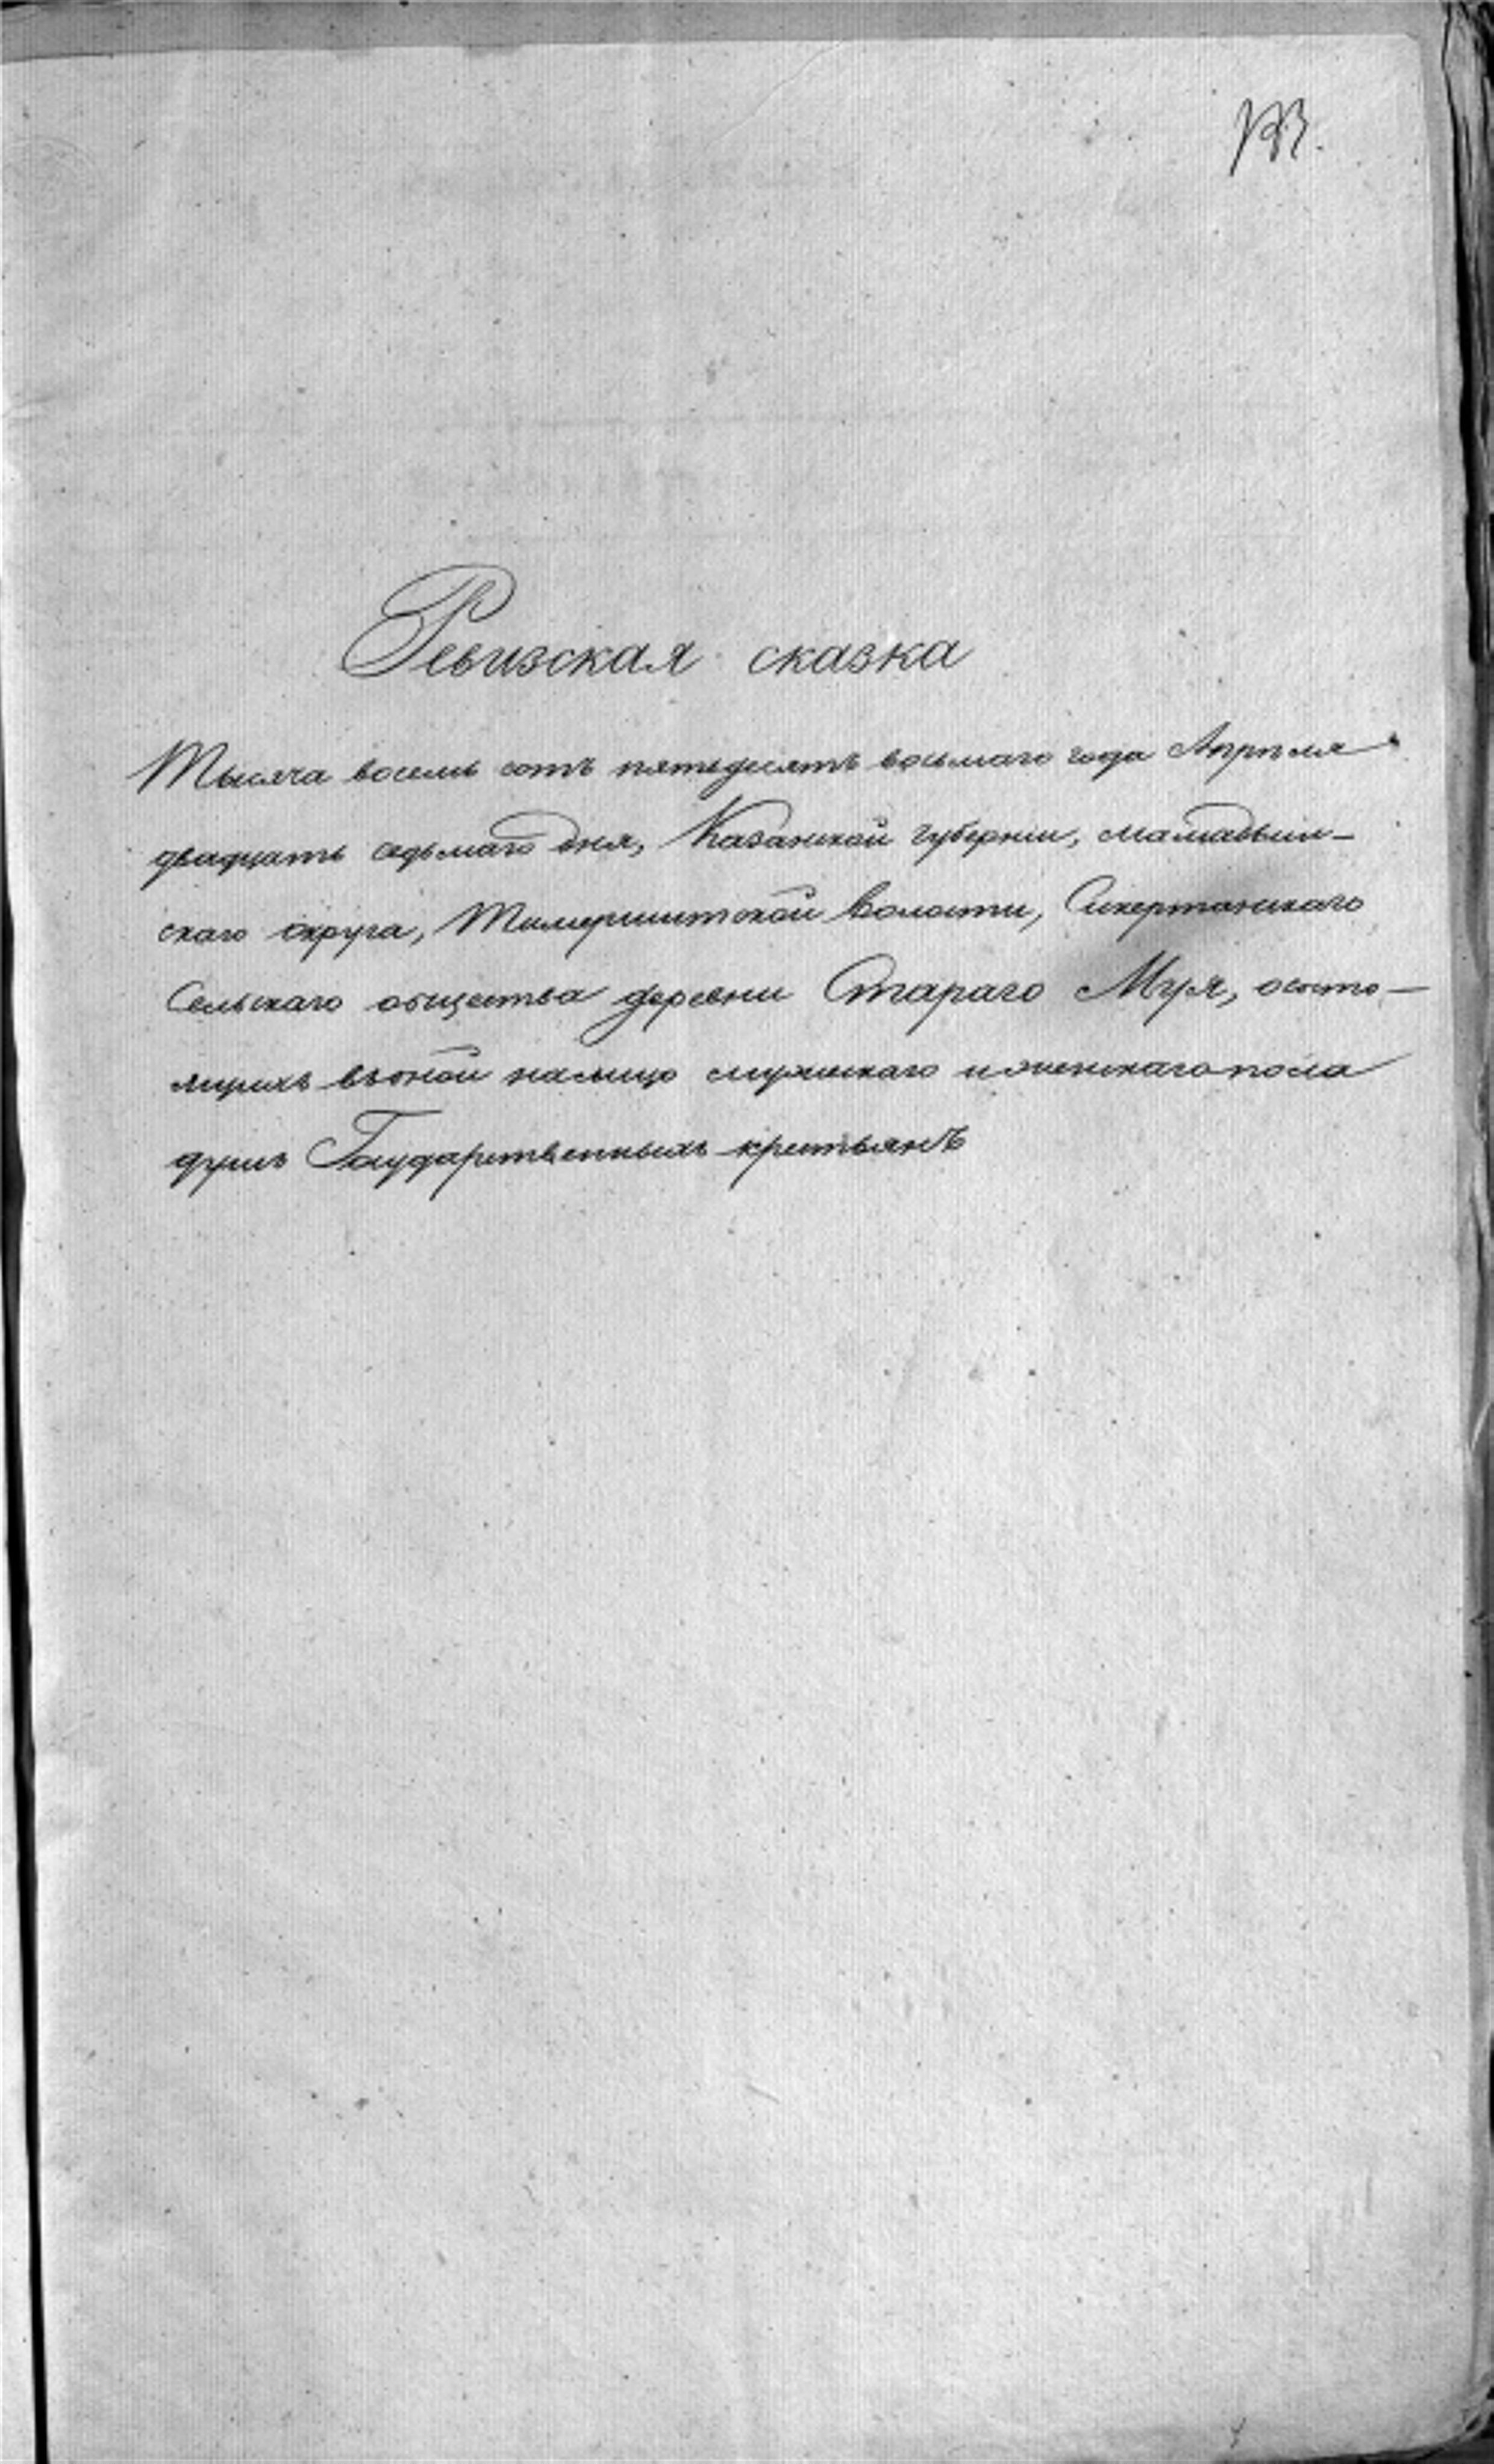 Ревизская сказка
Тысяча восемь сотъ пятьдесятъ восьмаго года Апрѣля
двадцать седьмаго дня, Казанской губерніи, Мамадыш-
скаго округа, Тимершитской волости, Сикертанскаго
Сельскаго общества деревни Стараго Муя, состо-
ящихъ въ оной налицо мужескаго и женскаго пола
душъ Государственныхъ крестьянъ